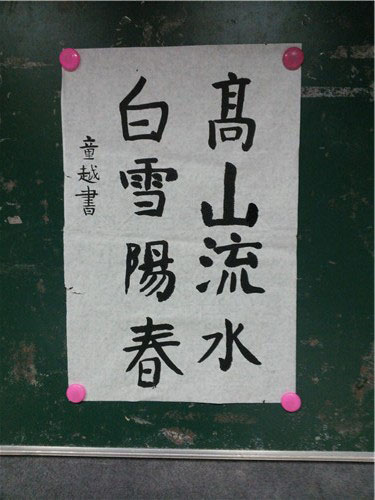 髙山流水
白雪陽春
童越書